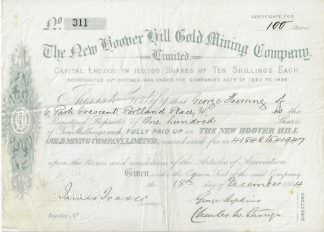 No 311
CERTIFICATE FOR
100 Shares
The New Hoover Hill Gold Mining Company,
Limited
CAPITAL £60,000 IN 120,000 SHARES OF TEN SHILLINGS EACH.
INCORPORATED OCTOBER 1884 UNDER THE COMPANIES ACTS OF 1862 TO 1883
This is to Certify that George
Park Crescent, Portland Place W. is the
Registered Proprietor of One hundred Shares
of Ten Shillings each FULLY PAID UP in THE NEW HOOVER HILL
GOLD MINING COMPANY, LIMITED, numbered from 41848 to 41947
upon the terms and conditions of the Articles of Association
Given under the Common Seal of the said Company
the 18th day of December 1884
James Fraser
George Hopkins
Charles W.
DIRECTORS